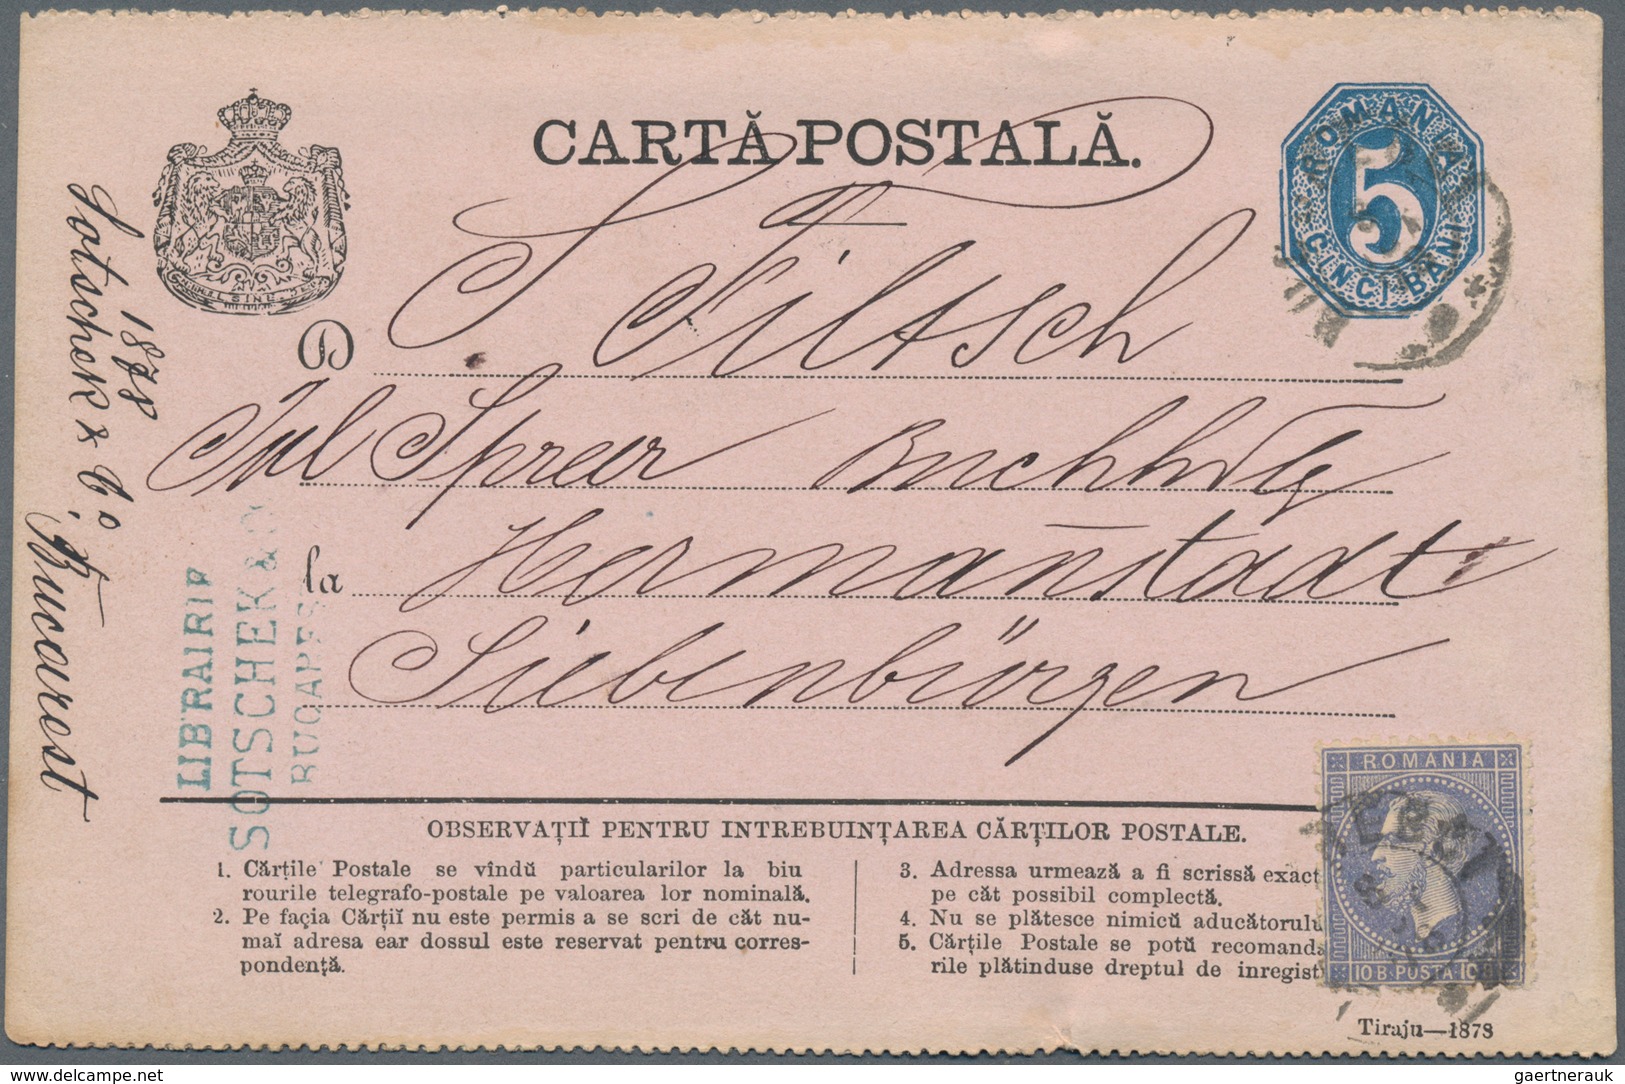 CARTĂ POSTALĂ.
ROMANIA
5
CINCI BANI
D
Filtsch
Jul Spreer Buchhdlg
la Hermanstadt
Siebenbürgen
1878
Sotschek & Co, Bucarest
LIBRAIRIE
SOTSCHEK & C
BUCAREST
OBSERVAȚIĬ PENTRU INTREBUINȚAREA CĂRȚILOR POSTALE.
1. Cărțile Postale se vîndŭ particularilor la biu
rourile telegrafo-postale pe valoarea lor nominală.
2. Pe façia Cărțiĭ nu este permis a se scri de cât nu-
maĭ adresa ear dossul este reservat pentru corres-
pondență.
3. Adressa urmează a fi scrissă exact
pe cât possibil complectă.
4. Nu se plătesce nimicŭ aducătorulu
5. Cărțile Postale se potŭ recomanda
rile plătinduse dreptul de inregist
ROMANIA
10 B. POSTA 10 B
Tiraju—1878
delcampe.net
gaertnerauk